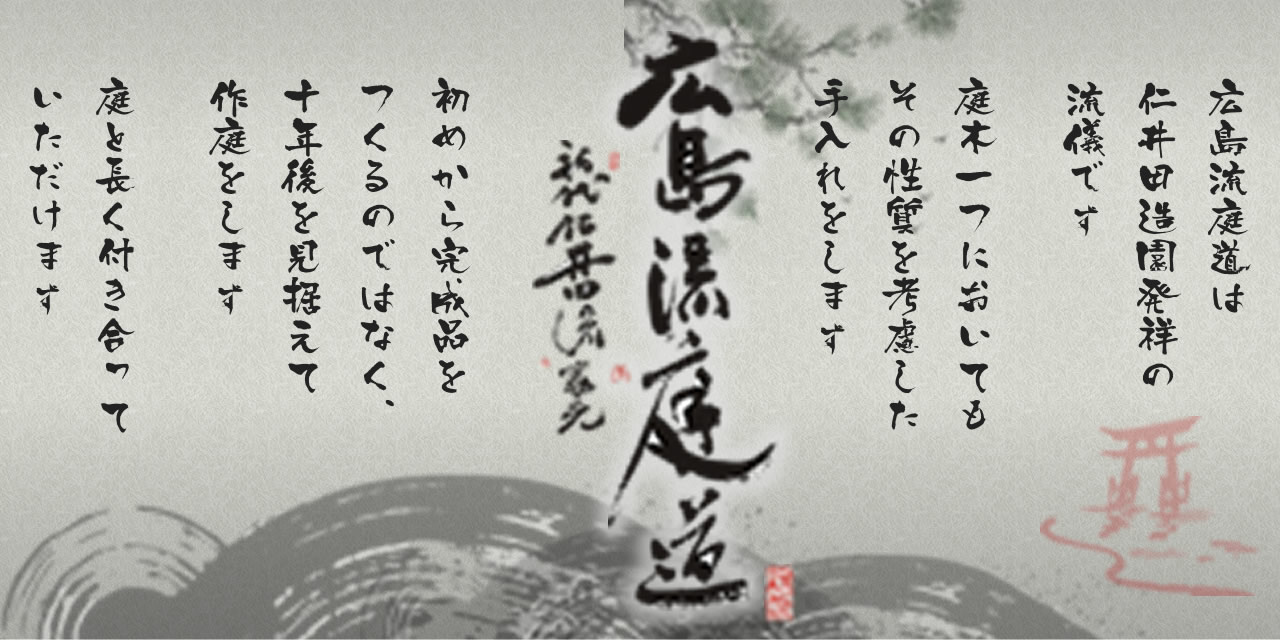 広島流庭道は
仁井田造園発祥の
流儀です
庭木一つにおいても
その性質を考慮した
手入れをします
広島流庭道
初代仁井田流家元
初めから完成品を
つくるのではなく、
十年後を見据えて
作庭をします
庭と長く付き合って
いただけます